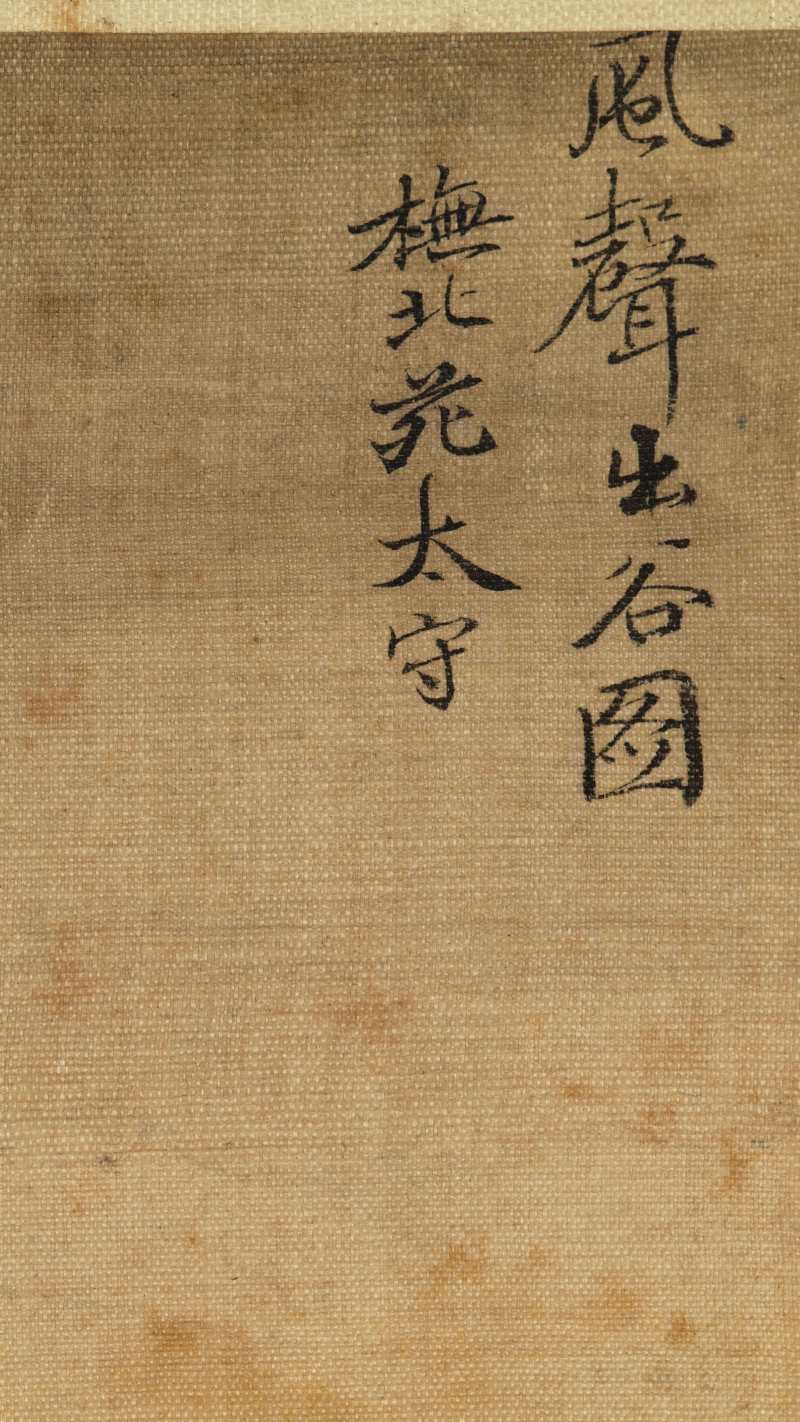 風聲出谷图
橅北苑太守